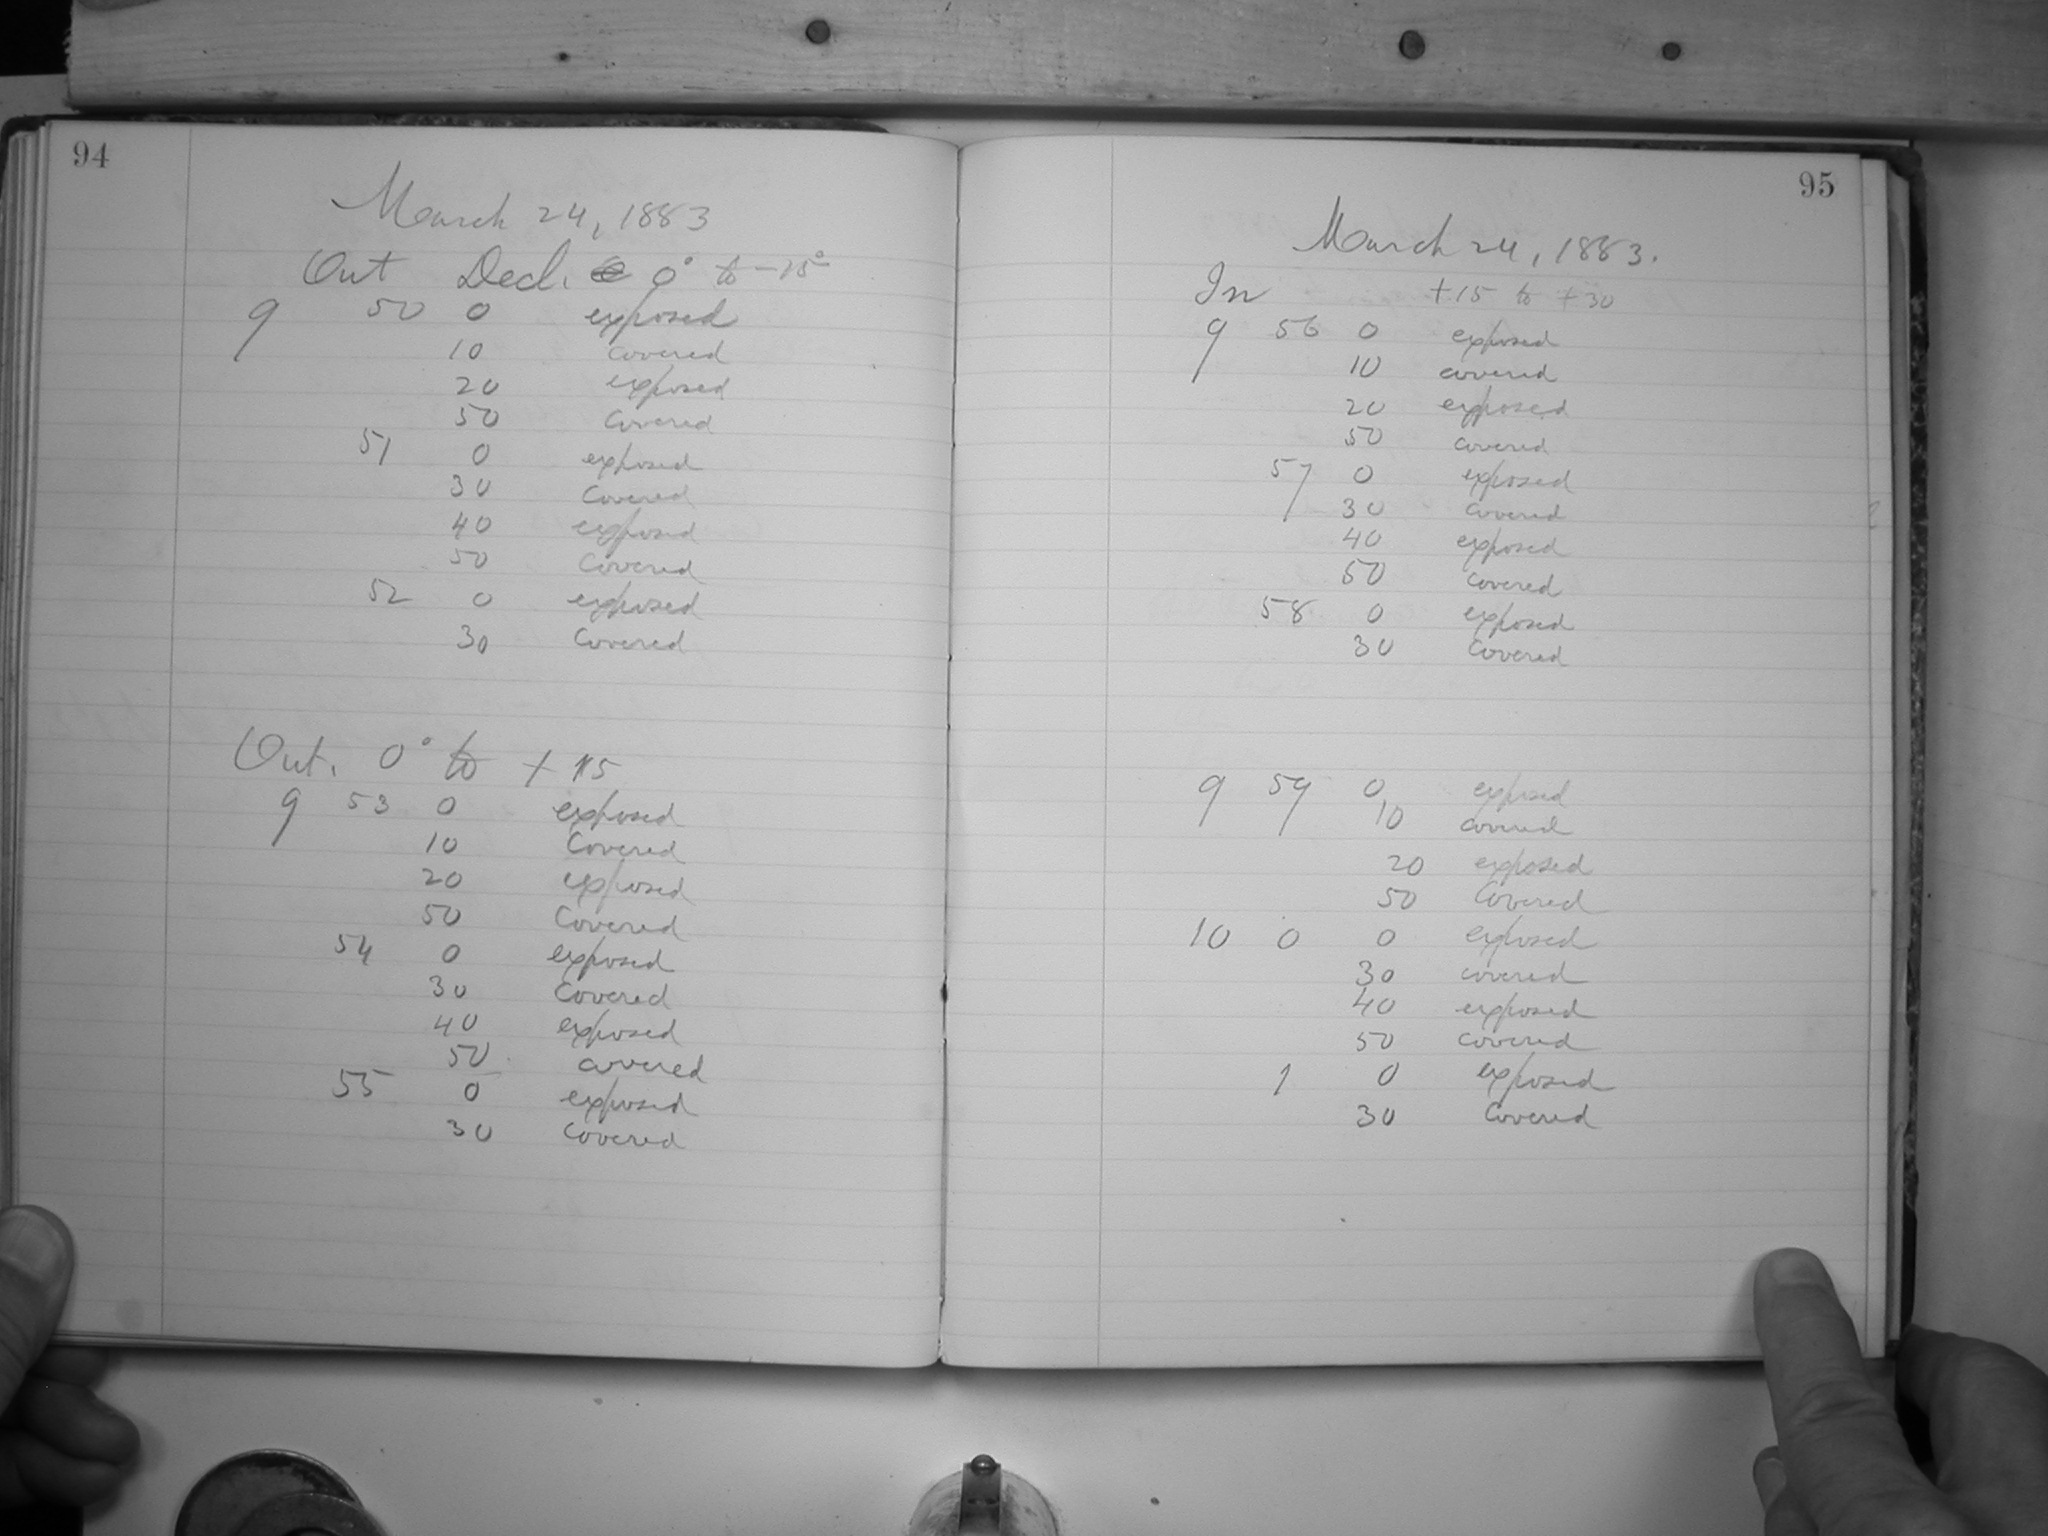 94
March 24, 1883
Out Decl. 0° to -15°
9 50 0 exposed
10 covered
20 exposed
50 covered
51 0 exposed
30 Covered
40 exposed
50 Covered
52 0 exposed
30 Covered
Out. 0° to + 15
9 53 0 exposed
10 Covered
20 exposed
50 Covered
54 0 exposed
30 Covered
40 exposed
50 covered
55 0 exposed
30 Covered
95
March 24, 1883.
In +15 to +30
9 56 0 exposed
10 covered
20 exposed
50 covered
57 0 exposed
30 covered
40 exposed
50 covered
58 0 exposed
30 Covered
9 59 0 exposed
10 covered
20 exposed
50 Covered
10 0 0 exposed
30 covered
40 exposed
50 covered
1 0 exposed
30 Covered